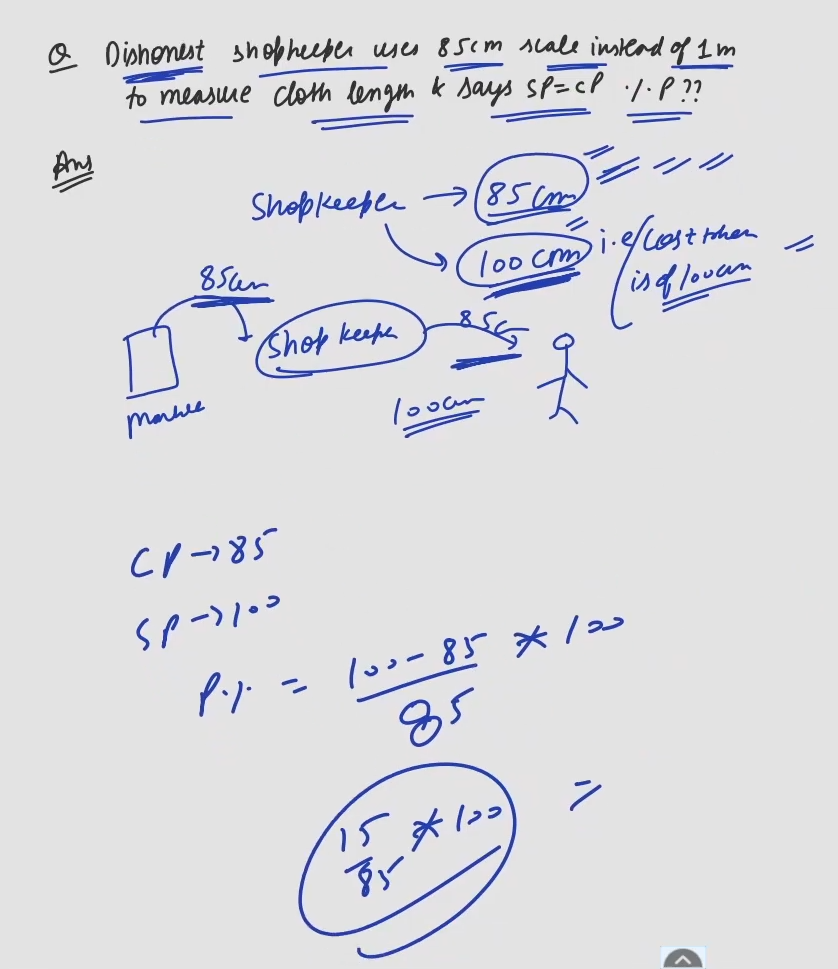 Q Dishonest shopkeeper uses 85cm scale instead of 1m
to measure cloth length & says SP=CP %P??
Ans
Shopkeeper → 85cm
100cm i.e cost taken
is of 100cm
85cm
Shopkeeper
85c
Market
100cm
CP→85
SP→100
P% = 100-85 * 100
85
=
15 * 100
85